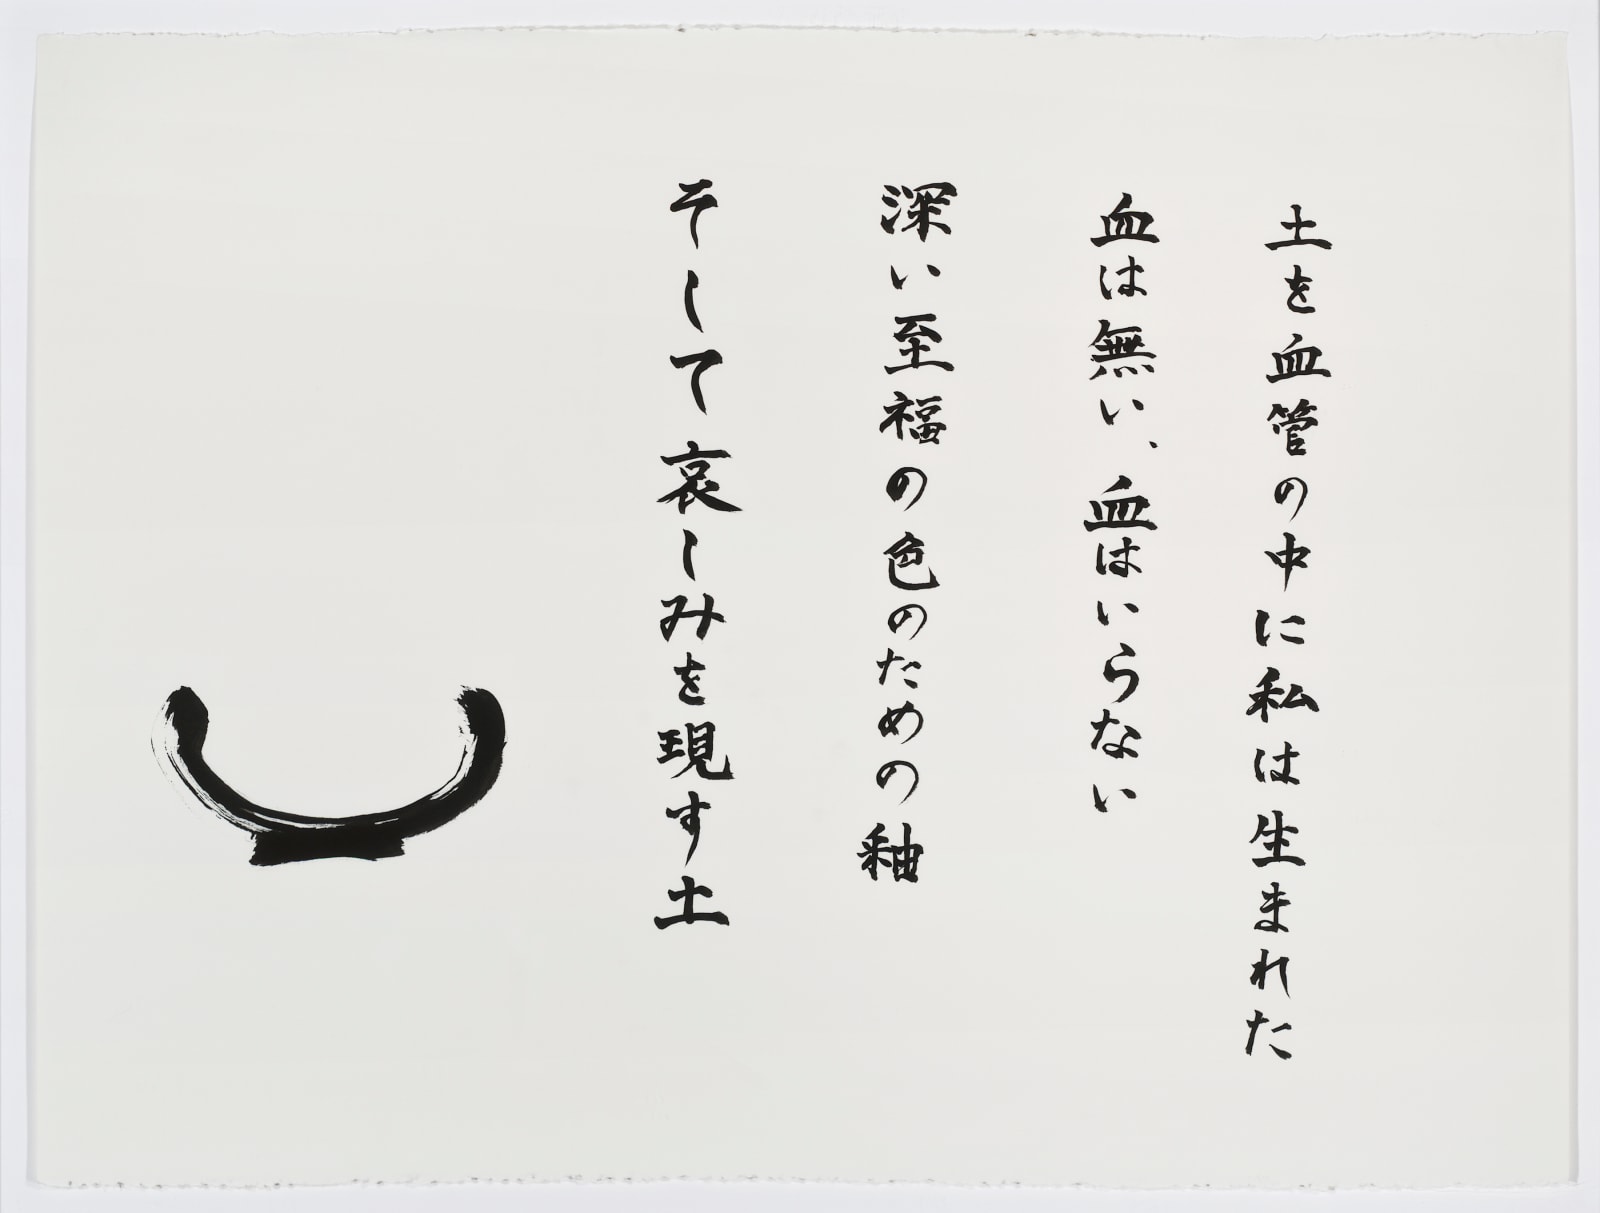 土を血管の中に私は生まれた
血は無い、血はいらない
深い至福の色のための釉
そして哀しみを現す土